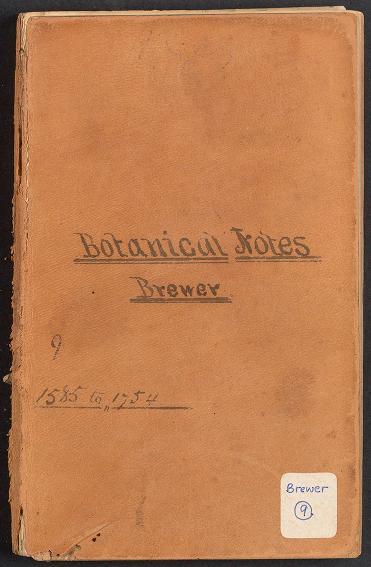 Botanical Notes
Brewer
9
1585 to 1754
Brewer
9